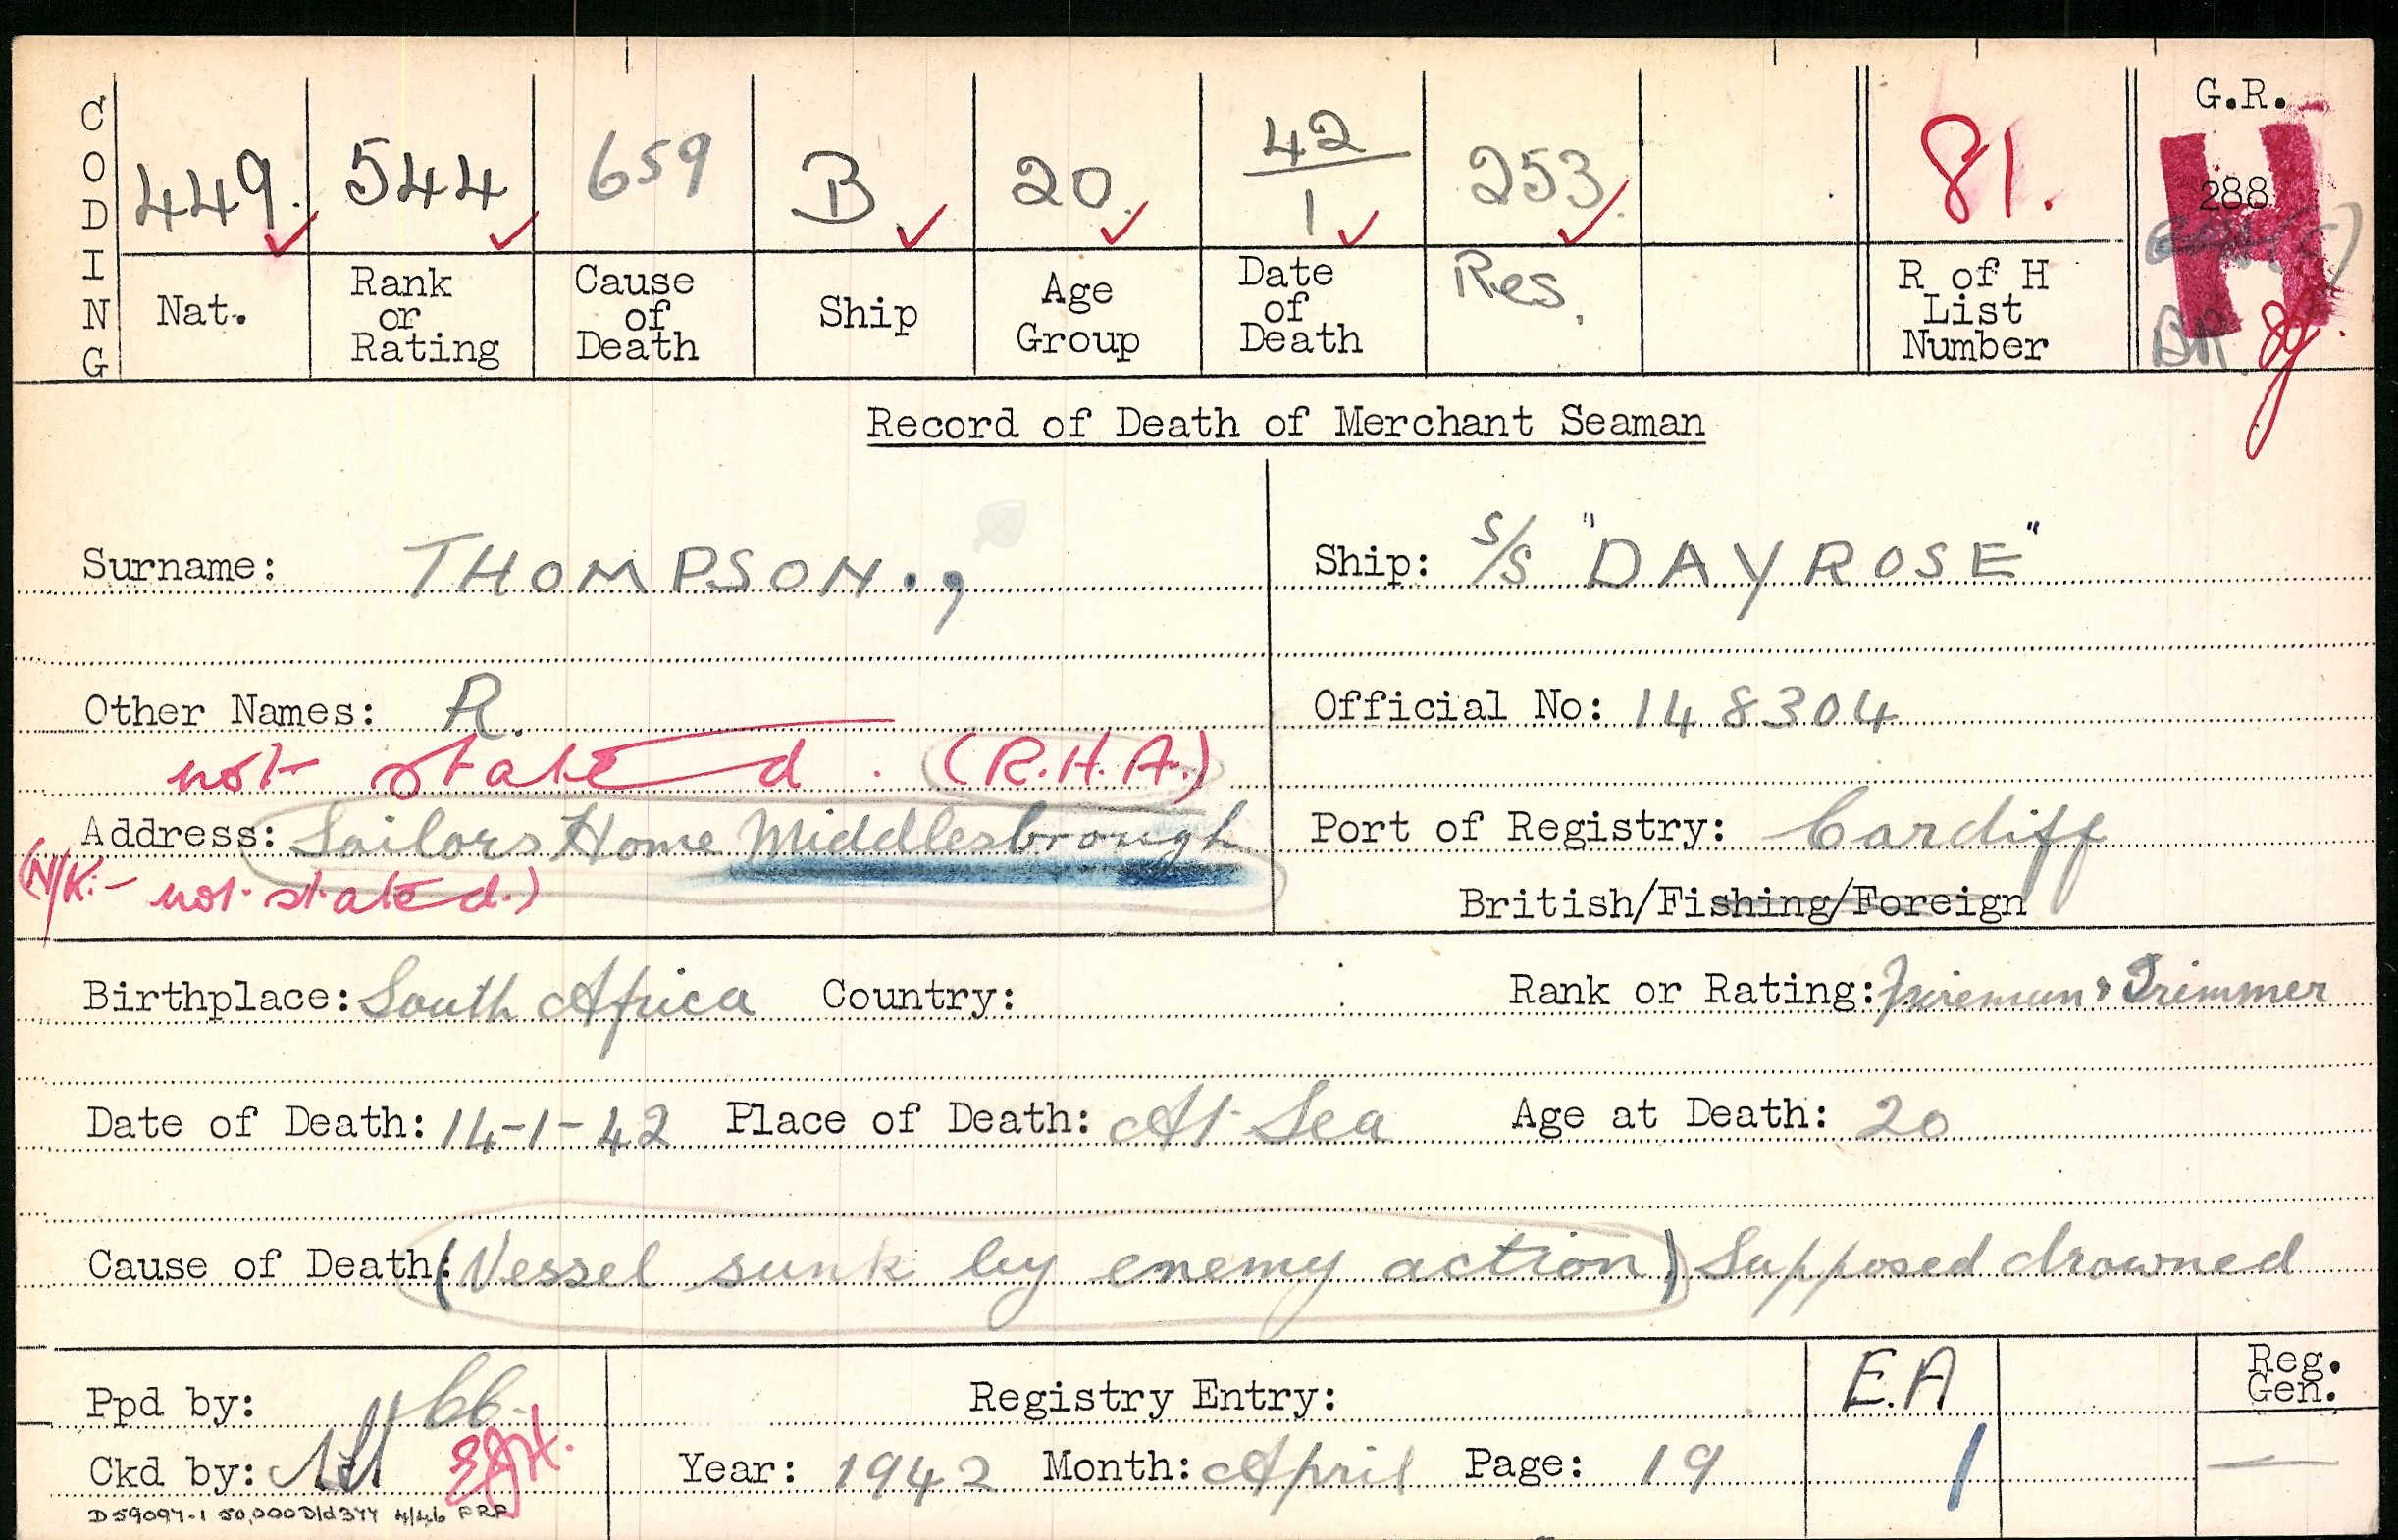 CODING
449. 544 659 B 20. 42/1 253. 81. G.R.
H
288
Nat. Rank or Rating Cause of Death Ship Age Group Date of Death Res. R of H List Number
Record of Death of Merchant Seaman
Surname: THOMPSON.,
Ship: S/S "DAYROSE"
Other Names: R.
Official No: 148304
not stated. (R.H.A.)
Address: Sailors Home Middlesbrough
Port of Registry: Cardiff
(N/K:- not stated.)
British/Fishing/Foreign
Birthplace: South Africa Country: Rank or Rating: Fireman & Trimmer
Date of Death: 14-1-42 Place of Death: At Sea Age at Death: 20
Cause of Death: (Vessel sunk by enemy action) Supposed drowned
Ppd by: Registry Entry: E.A Reg. Gen.
Ckd by: Year: 1942 Month: April Page: 19 1 —
D59097-1 50,000 D/d 377 4/46 PRP